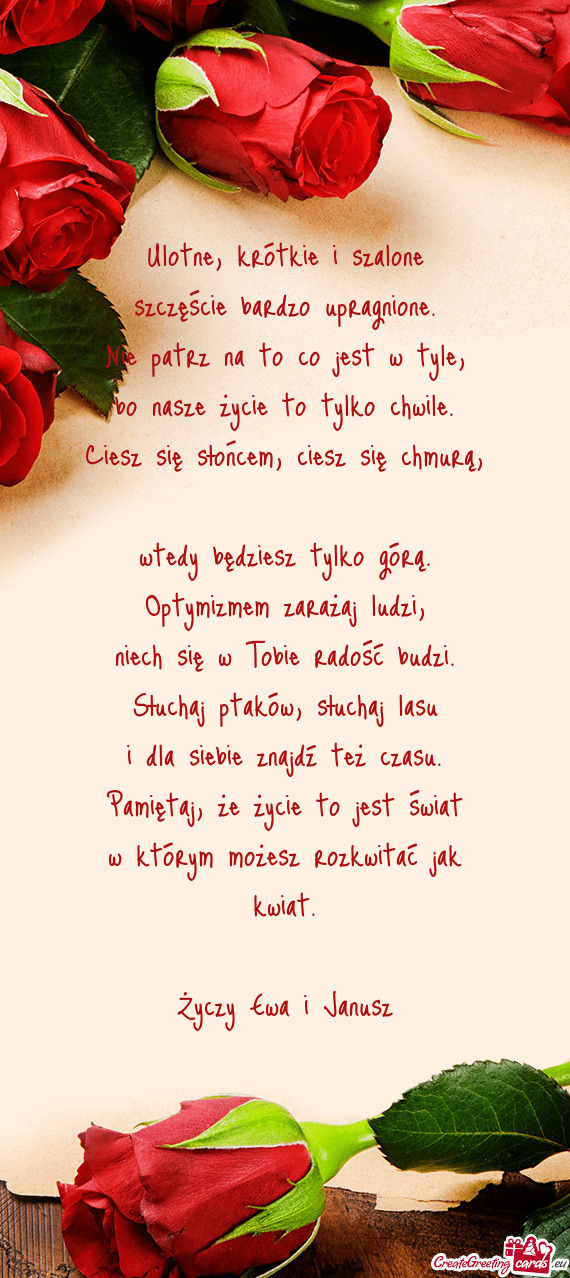 Ulotne, krótkie i szalone
szczęście bardzo upragnione.
Nie patrz na to co jest w tyle,
bo nasze życie to tylko chwile.
Ciesz się słońcem, ciesz się chmurą,
wtedy będziesz tylko górą.
Optymizmem zarażaj ludzi,
niech się w Tobie radość budzi.
Słuchaj ptaków, słuchaj lasu
i dla siebie znajdź też czasu.
Pamiętaj, że życie to jest świat
w którym możesz rozkwitać jak
kwiat.
Życzy Ewa i Janusz
CreateGreetingcards.eu